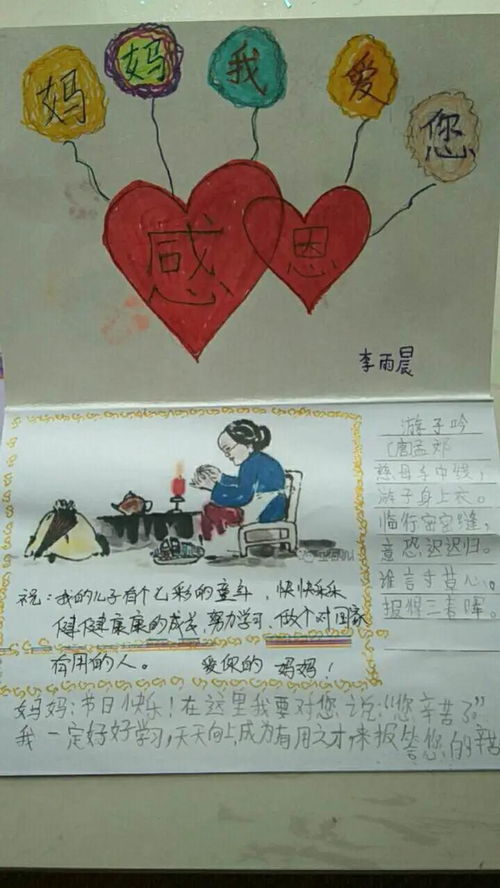 妈 妈 我 爱 您
感 恩
李雨晨
游子吟
(唐)孟郊
慈母手中线，
游子身上衣。
临行密密缝，
意恐迟迟归。
谁言寸草心，
报得三春晖。
祝：我的儿子有个七彩的童年，快快乐乐
健健康康的成长，努力学习，做个对国家
有用的人。 爱你的 妈妈！
妈妈：节日快乐！在这里我要对您说：“您辛苦了”
我一定好好学习，天天向上，成为有用之才，来报答您的辛苦